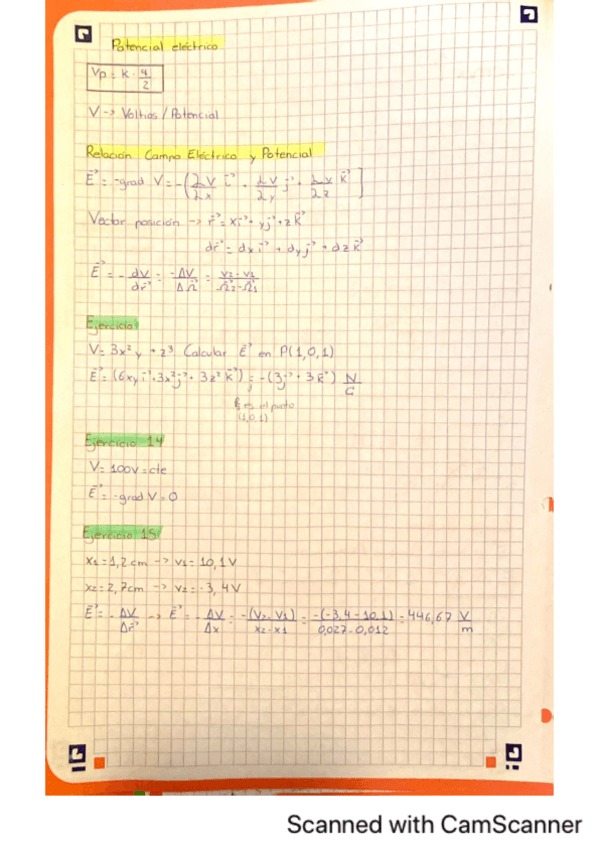 Potencial eléctrico
Vp = k · q/2
V -> Voltios / Potencial
Relación Campo Eléctrico y Potencial
E⃗ = -grad V = -(∂V/∂x i⃗ + ∂V/∂y j⃗ + ∂V/∂z k⃗]
Vector posición -> r⃗ = xi⃗ + yj⃗ + zk⃗
dr⃗ = dx i⃗ + dy j⃗ + dz k⃗
E⃗ = - dV/dr⃗ = -ΔV/Δr⃗ = V2-V1/r⃗2-r⃗1
Ejercicio
V = 3x²y + z³ Calcular E⃗ en P(1,0,1)
E⃗ = (6xy i⃗ + 3x² j⃗ + 3z² k⃗) = -(3j⃗ + 3k⃗) N/C
es el punto
(1,0,1)
Ejercicio 14
V = 100V = cte
E⃗ = -grad V = 0
Ejercicio 15
x1 = 1,2 cm -> V1 = 10,1 V
x2 = 2,7 cm -> V2 = -3,4 V
E⃗ = - ΔV/Δr⃗ -> E⃗ = - ΔV/Δx = -(V2-V1)/x2-x1 = -(-3,4-10,1)/0,027-0,012 = 446,67 V/m
Scanned with CamScanner